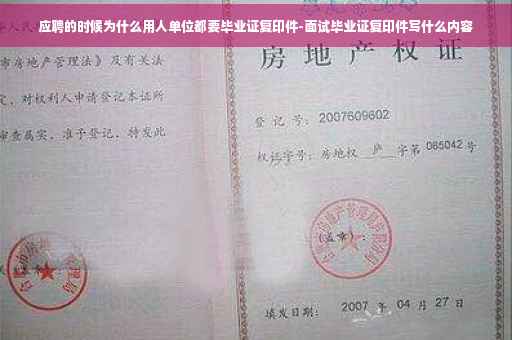 应聘的时候为什么用人单位都要毕业证复印件-面试毕业证复印件写什么内容
市房地产管理法》及有关法
定，对权利人申请登记本证所
审查属实，准予登记，特发此
房地产权证
登记号：2007609602
权证字号：房地权 庐 字第 065042 号
(盖章)：
填发日期：2007 年 04 月 27 日